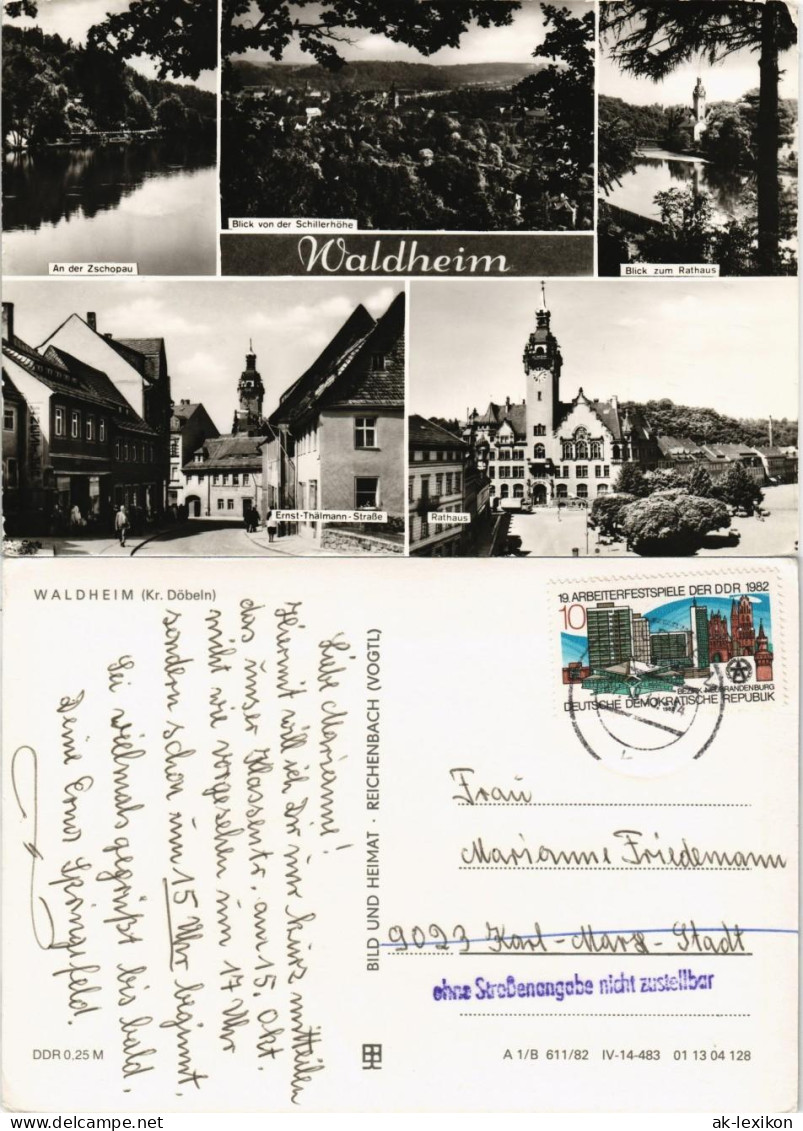 Blick von der Schillerhöhe
An der Zschopau
Waldheim
Blick zum Rathaus
Ernst-Thälmann-Straße
Rathaus
WALDHEIM (Kr. Döbeln)
Liebe Marianne!
Hiermit will ich Dir nur kurz mitteilen
das unser Klassentr. am 15. Okt.
nicht wie vorgesehen um 17 Uhr
sondern schon um 15 Uhr beginnt.
Sei vielmals gegrüßt bis bald.
Deine Erna Springsfeld.
DDR 0,25 M
BILD UND HEIMAT · REICHENBACH (VOGTL)
19. ARBEITERFESTSPIELE DER DDR 1982
10
BEZIRK NEUBRANDENBURG
DEUTSCHE DEMOKRATISCHE REPUBLIK
Frau
Marianne Friedemann
9023 Karl-Marx-Stadt
ohne Straßenangabe nicht zustellbar
A 1/B 611/82 IV-14-483 01 13 04 128
ak-lexikon